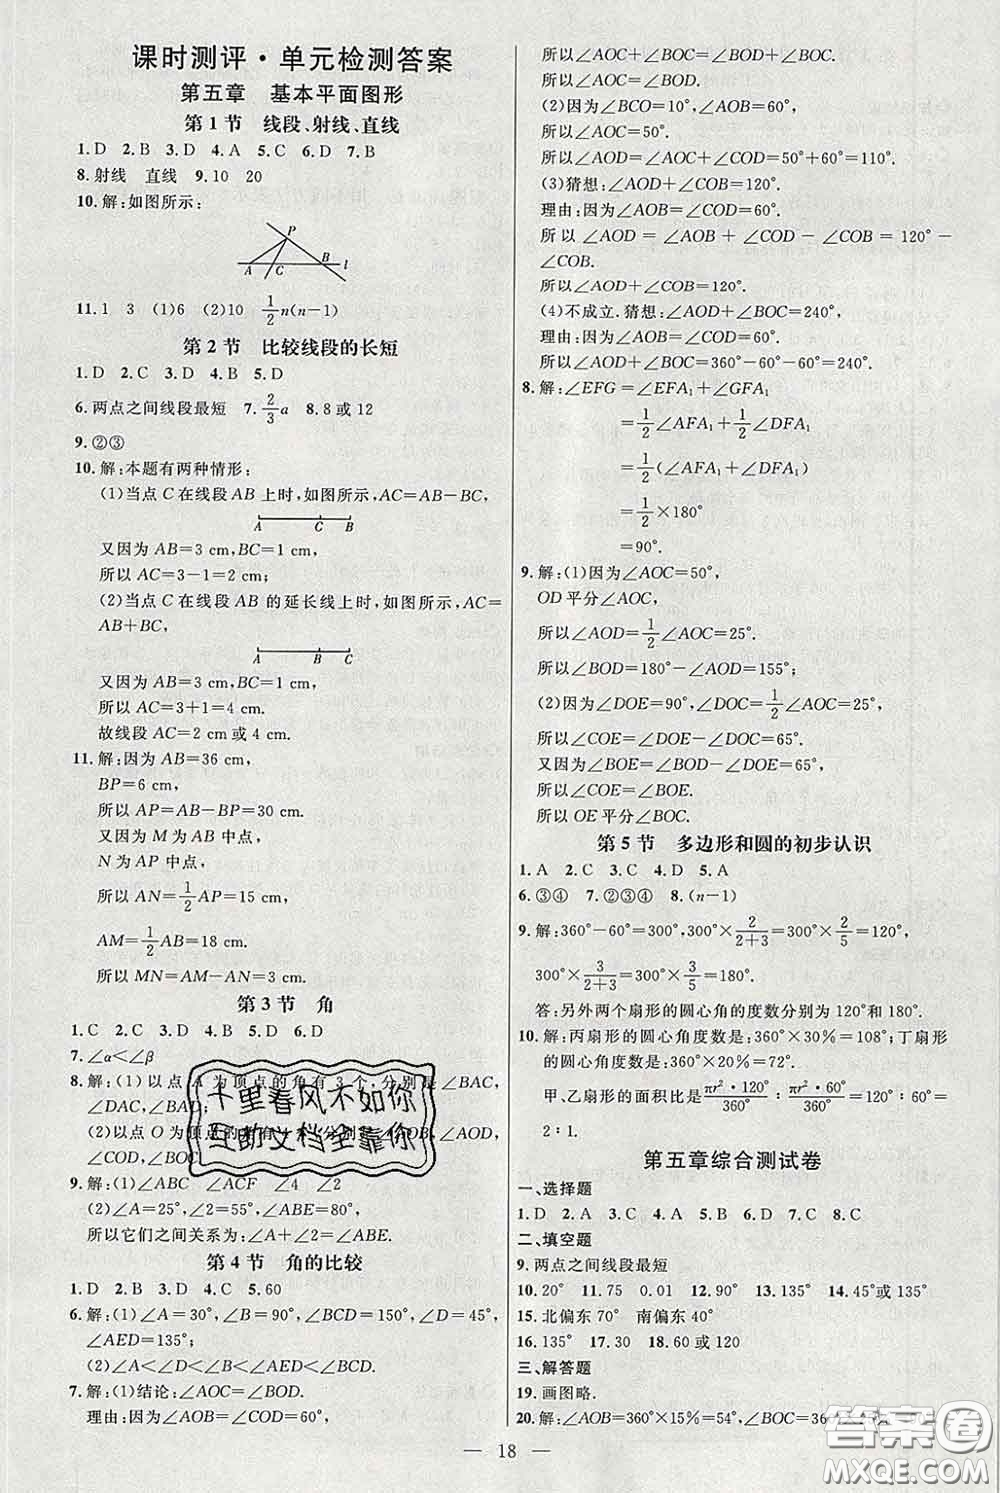 课时测评·单元检测答案
第五章 基本平面图形
第1节 线段、射线、直线
1.D 2.B 3.D 4.A 5.C 6.D 7.B
8.射线 直线 9.10 20
10.解:如图所示:
P
A C B l
11.1 3 (1)6 (2)10 1/2 n(n-1)
第2节 比较线段的长短
1.D 2.C 3.D 4.B 5.D
6.两点之间线段最短 7.2/3 a 8.8或12
9.②③
10.解:本题有两种情形:
(1)当点C在线段AB上时,如图所示,AC=AB-BC,
A C B
又因为AB=3 cm,BC=1 cm,
所以AC=3-1=2 cm;
(2)当点C在线段AB的延长线上时,如图所示,AC=
AB+BC,
A B C
又因为AB=3 cm,BC=1 cm,
所以AC=3+1=4 cm.
故线段AC=2 cm或4 cm.
11.解:因为AB=36 cm,
BP=6 cm,
所以AP=AB-BP=30 cm.
又因为M为AB中点,
N为AP中点,
所以AN=1/2 AP=15 cm,
AM=1/2 AB=18 cm.
所以MN=AM-AN=3 cm.
第3节 角
1.C 2.C 3.D 4.B 5.D 6.D
7.∠α<∠β
8.解:(1)以点A为顶点的角有3个,分别是∠BAC,
∠DAC,∠BAD;
(2)以点O为顶点的
9.解:(1)∠ABC ∠ACF ∠4 ∠2
(2)∠A=25°,∠2=55°,∠ABE=80°,
所以它们之间关系为:∠A+∠2=∠ABE.
第4节 角的比较
1.D 2.B 3.D 4.C 5.60
6.解:(1)∠A=30°,∠B=60°,∠BCD=150°,∠D=45°,
∠AED=135°;
(2)∠A<∠D<∠B<∠AED<∠BCD.
7.解:(1)结论:∠AOC=∠BOD.
理由:因为∠AOB=∠COD=60°,
所以∠AOC+∠BOC=∠BOD+∠BOC.
所以∠AOC=∠BOD.
(2)因为∠BCO=10°,∠AOB=60°,
所以∠AOC=50°.
所以∠AOD=∠AOC+∠COD=50°+60°=110°.
(3)猜想:∠AOD+∠COB=120°.
理由:因为∠AOB=∠COD=60°.
所以∠AOD=∠AOB+∠COD-∠COB=120°-
∠COB.
所以∠AOD+∠COB=120°.
(4)不成立.猜想:∠AOD+∠BOC=240°,
理由:因为∠AOB=∠COD=60°.
所以∠AOD+∠BOC=360°-60°-60°=240°.
8.解:∠EFG=∠EFA₁+∠GFA₁
=1/2∠AFA₁+1/2∠DFA₁
=1/2(∠AFA₁+∠DFA₁)
=1/2×180°
=90°.
9.解:(1)因为∠AOC=50°,
OD平分∠AOC,
所以∠AOD=1/2∠AOC=25°.
所以∠BOD=180°-∠AOD=155°;
(2)因为∠DOE=90°,∠DOC=1/2∠AOC=25°,
所以∠COE=∠DOE-∠DOC=65°.
又因为∠BOE=∠BOD-∠DOE=65°,
所以∠COE=∠BOE.
所以OE平分∠BOC.
第5节 多边形和圆的初步认识
1.A 2.C 3.C 4.D 5.A
6.③④ 7.②③④ 8.(n-1)
9.解:360°-60°=300°,300°×2/(2+3)=300°×2/5=120°,
300°×3/(2+3)=300°×3/5=180°.
答:另外两个扇形的圆心角的度数分别为120°和180°.
10.解:丙扇形的圆心角度数是:360°×30%=108°;丁扇形
的圆心角度数是:360°×20%=72°.
甲、乙扇形的面积比是πr²·120°/360°:πr²·60°/360°=
2:1.
第五章综合测试卷
一、选择题
1.D 2.A 3.C 4.B 5.D 6.B 7.C 8.C
二、填空题
9.两点之间线段最短
10.20° 11.75 0.01 12.90 13.135° 14.45°或135°
15.北偏东70° 南偏东40°
16.135° 17.30 18.60或120
三、解答题
19.画图略.
20.解:∠AOB=360°×15%=54°,∠BOC=36
— 18 —
十里春风不如你
互助文档全靠你
答案圈
MXQE.COM